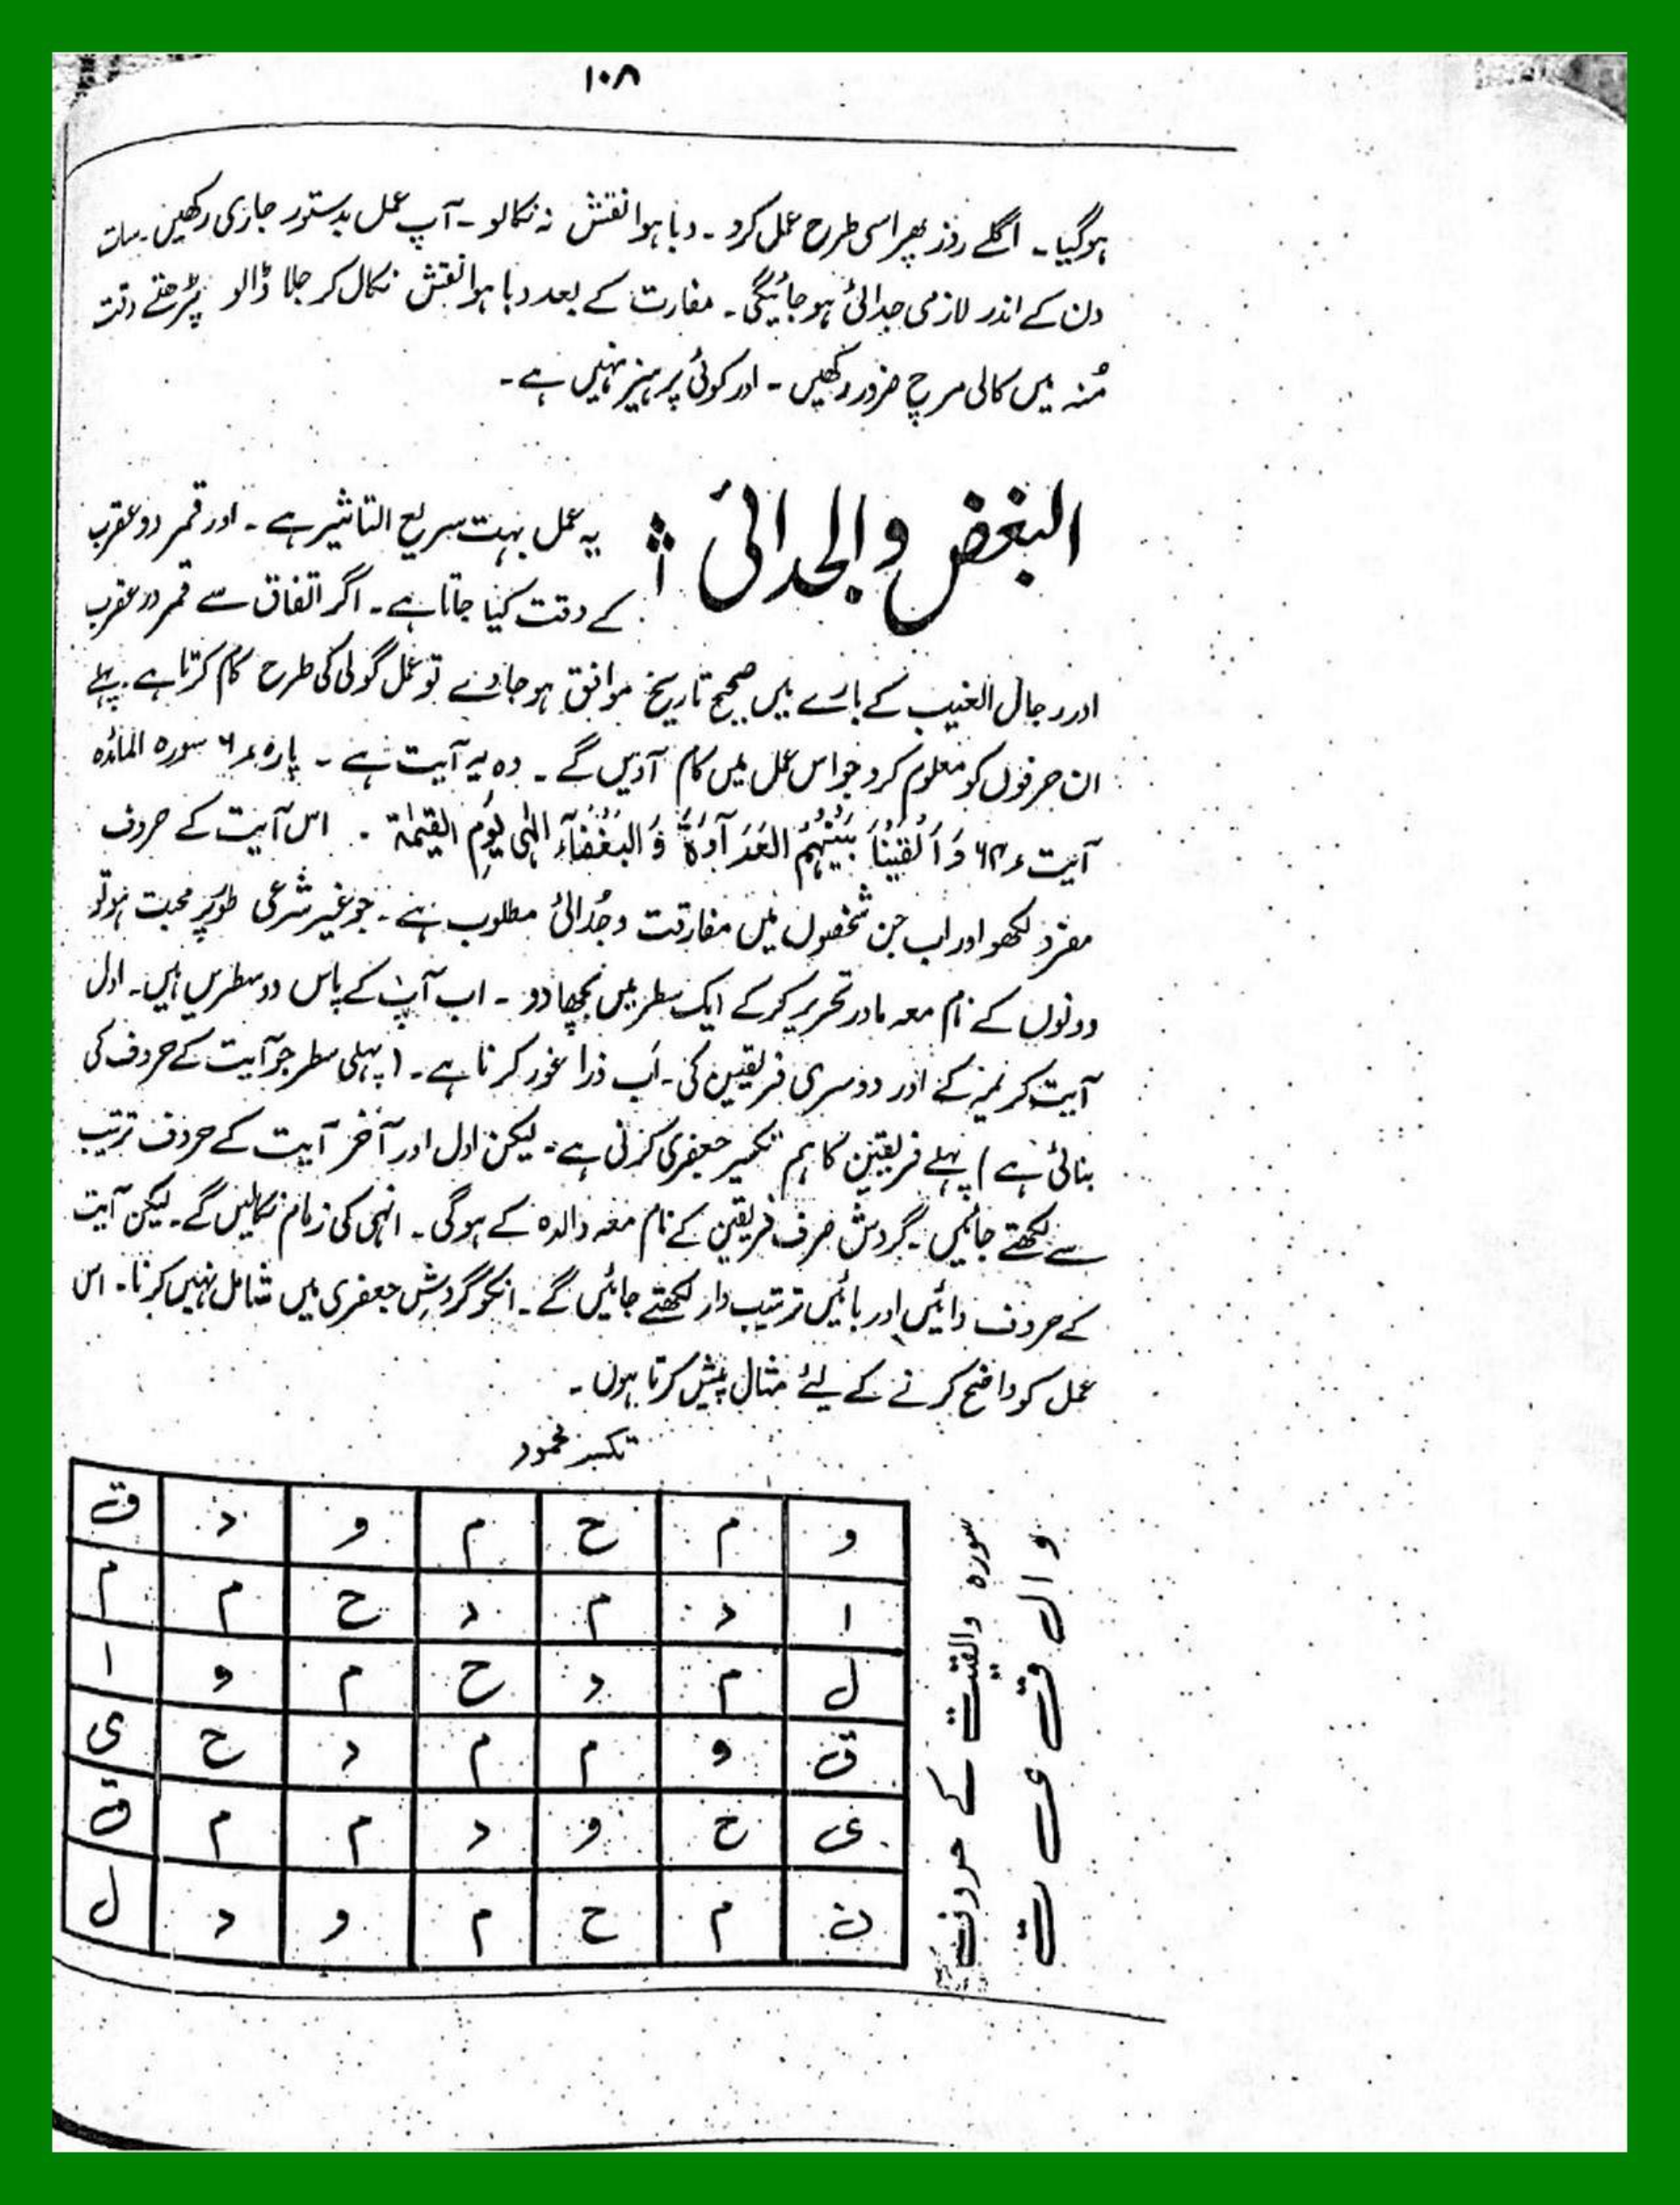 ۱۰۸
ہوگیا۔ اگلے روز پھر اسی طرح عمل کرو۔ دبا ہوا نقش نہ نکالو۔ آپ عمل بدستور جاری رکھیں۔ سات
دن کے اندر لازمی جدائی ہوجائیگی۔ مفارت کے بعد دبا ہوا نقش نکال کر جلا ڈالو پڑھتے وقت
مُنہ میں کالی مرچ ضرور رکھیں۔ اور کوئی پرہیز نہیں ہے۔
البغض والجدائی
یہ عمل بہت سریع التاثیر ہے۔ اور قمر دو عقرب
کے وقت کیا جاتا ہے۔ اگر اتفاق سے قمر در عقرب
اور رجال الغیب کے بارے میں صحیح تاریخ موافق ہوجاوے تو عمل گولی کی طرح کام کرتا ہے۔ پہلے
ان حرفوں کو معلوم کرو جو اس عمل میں کام آویں گے۔ وہ یہ آیت ہے۔ پارہ ۶ سورہ المائدہ
آیت ۶۴ وَاَلْقَیْنَا بَیْنَہُمُ العَدَآوَۃَ وَالبَغْضَآءَ الٰی یَومِ القیٰمۃ۔ اس آیت کے حروف
مفرد لکھو اور اب جن شخصوں میں مفارقت وجُدائی مطلوب ہے۔ جو غیر شرعی طورپر محبت ہو تو
دونوں کے نام معہ مادر تحریر کرکے ایک سطر میں بچھا دو۔ اب آپ کے پاس دو سطریں ہیں۔ اول
آیت کریمہ کے اور دوسری فریقین کی۔ اَب ذرا غور کرنا ہے۔ (پہلی سطر جو آیت کے حروف کی
بنائی ہے) پہلے فریقین کا ہم تکسیر جعفری کرنی ہے۔ لیکن اول اور آخر آیت کے حروف ترتیب
سے لکھتے جائیں۔ گردش صرف فریقین کے نام معہ والدہ کے ہوگی۔ انہی کی زمام نکالیں گے۔ لیکن آیت
کے حروف دائیں اور بائیں ترتیب دار لکھتے جائیں گے۔ انکو گردشِ جعفری میں شامل نہیں کرنا۔ اس
عمل کو واضح کرنے کے لیئے مثال پیش کرتا ہوں۔
تکسیر محمود
و م ح م و د ق
ا د م د ح م م
ل م د ح م و ا
ق و م م د ح ی
ی ح و د م م ق
ن م ح م و د ل
سورہ والقیت کے حروف
و ال ق ی ت